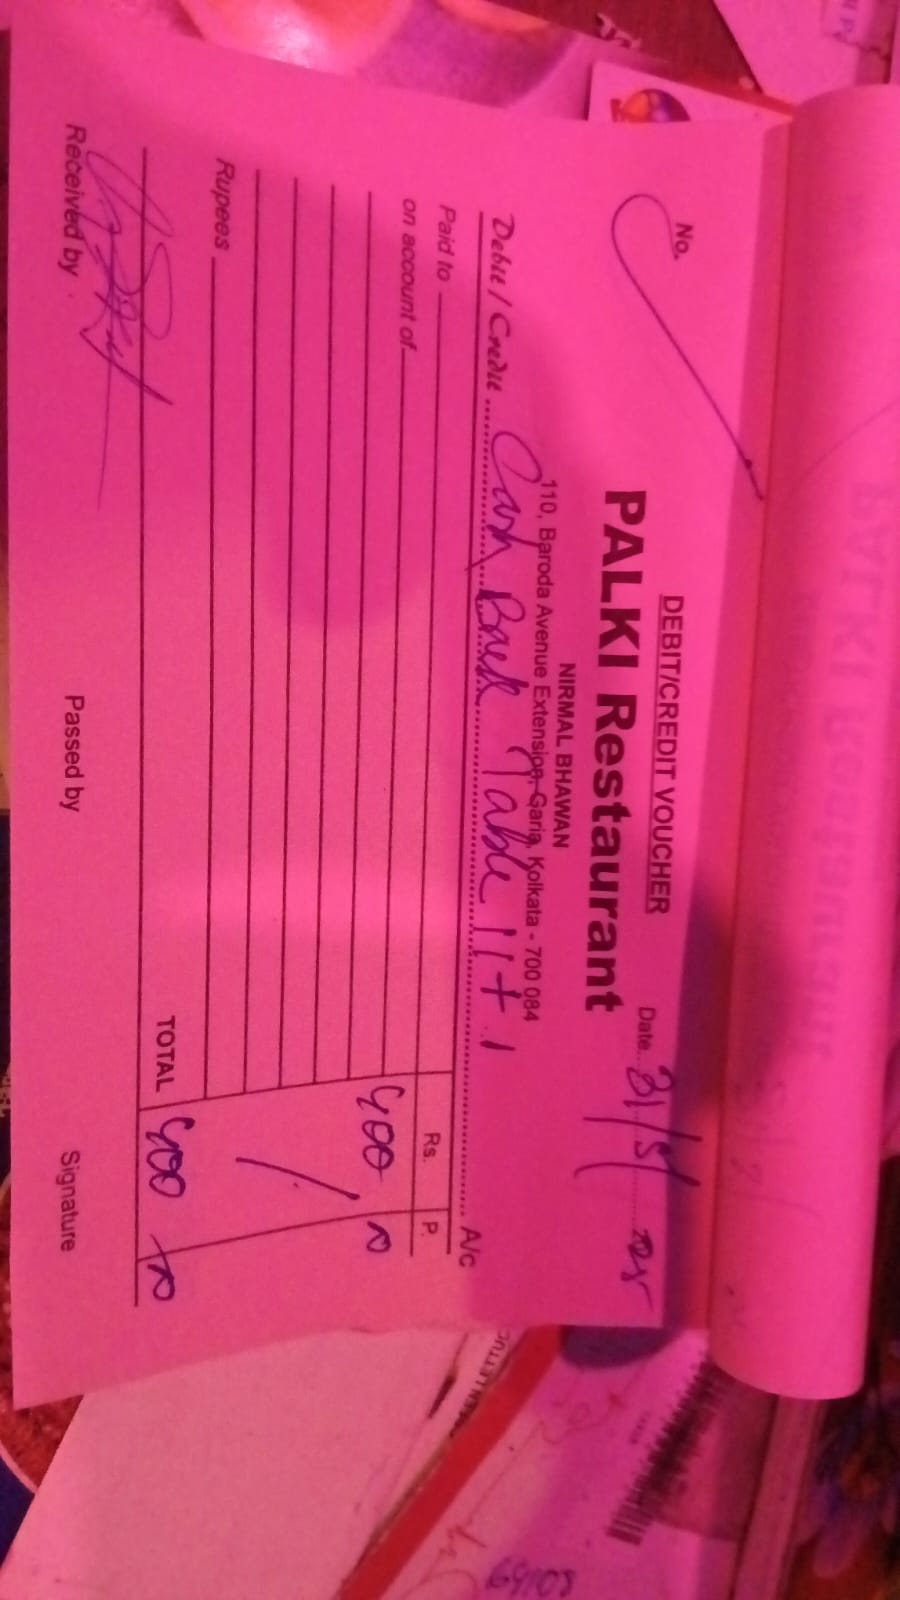 DEBIT/CREDIT VOUCHER
No.
PALKI Restaurant
Date
NIRMAL BHAWAN
110, Baroda Avenue Extension, Garia, Kolkata - 700 084
Debit / Credit Cash Back Table 11 + 1 A/c
Paid to Rs. P.
on account of
400
Rupees
TOTAL 400
Received by Passed by Signature